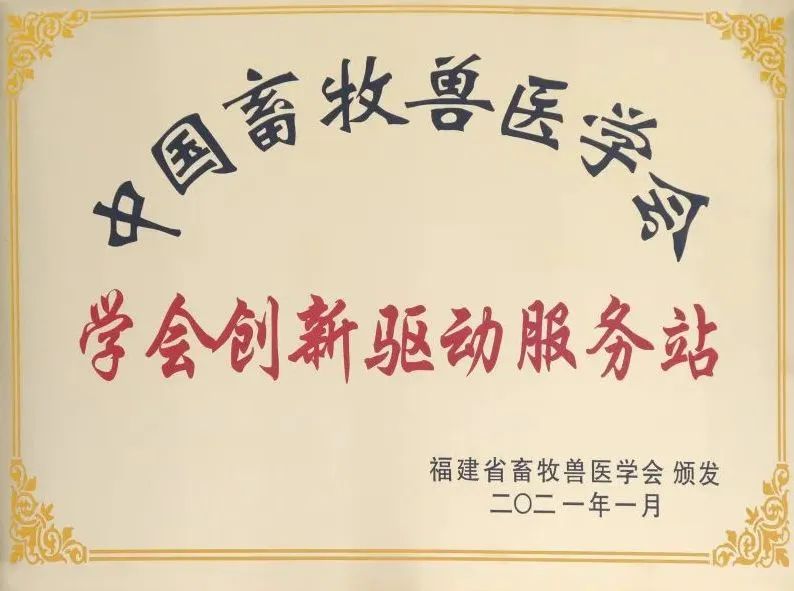 中国畜牧兽医学会
学会创新驱动服务站
福建省畜牧兽医学会 颁发
二〇二一年一月